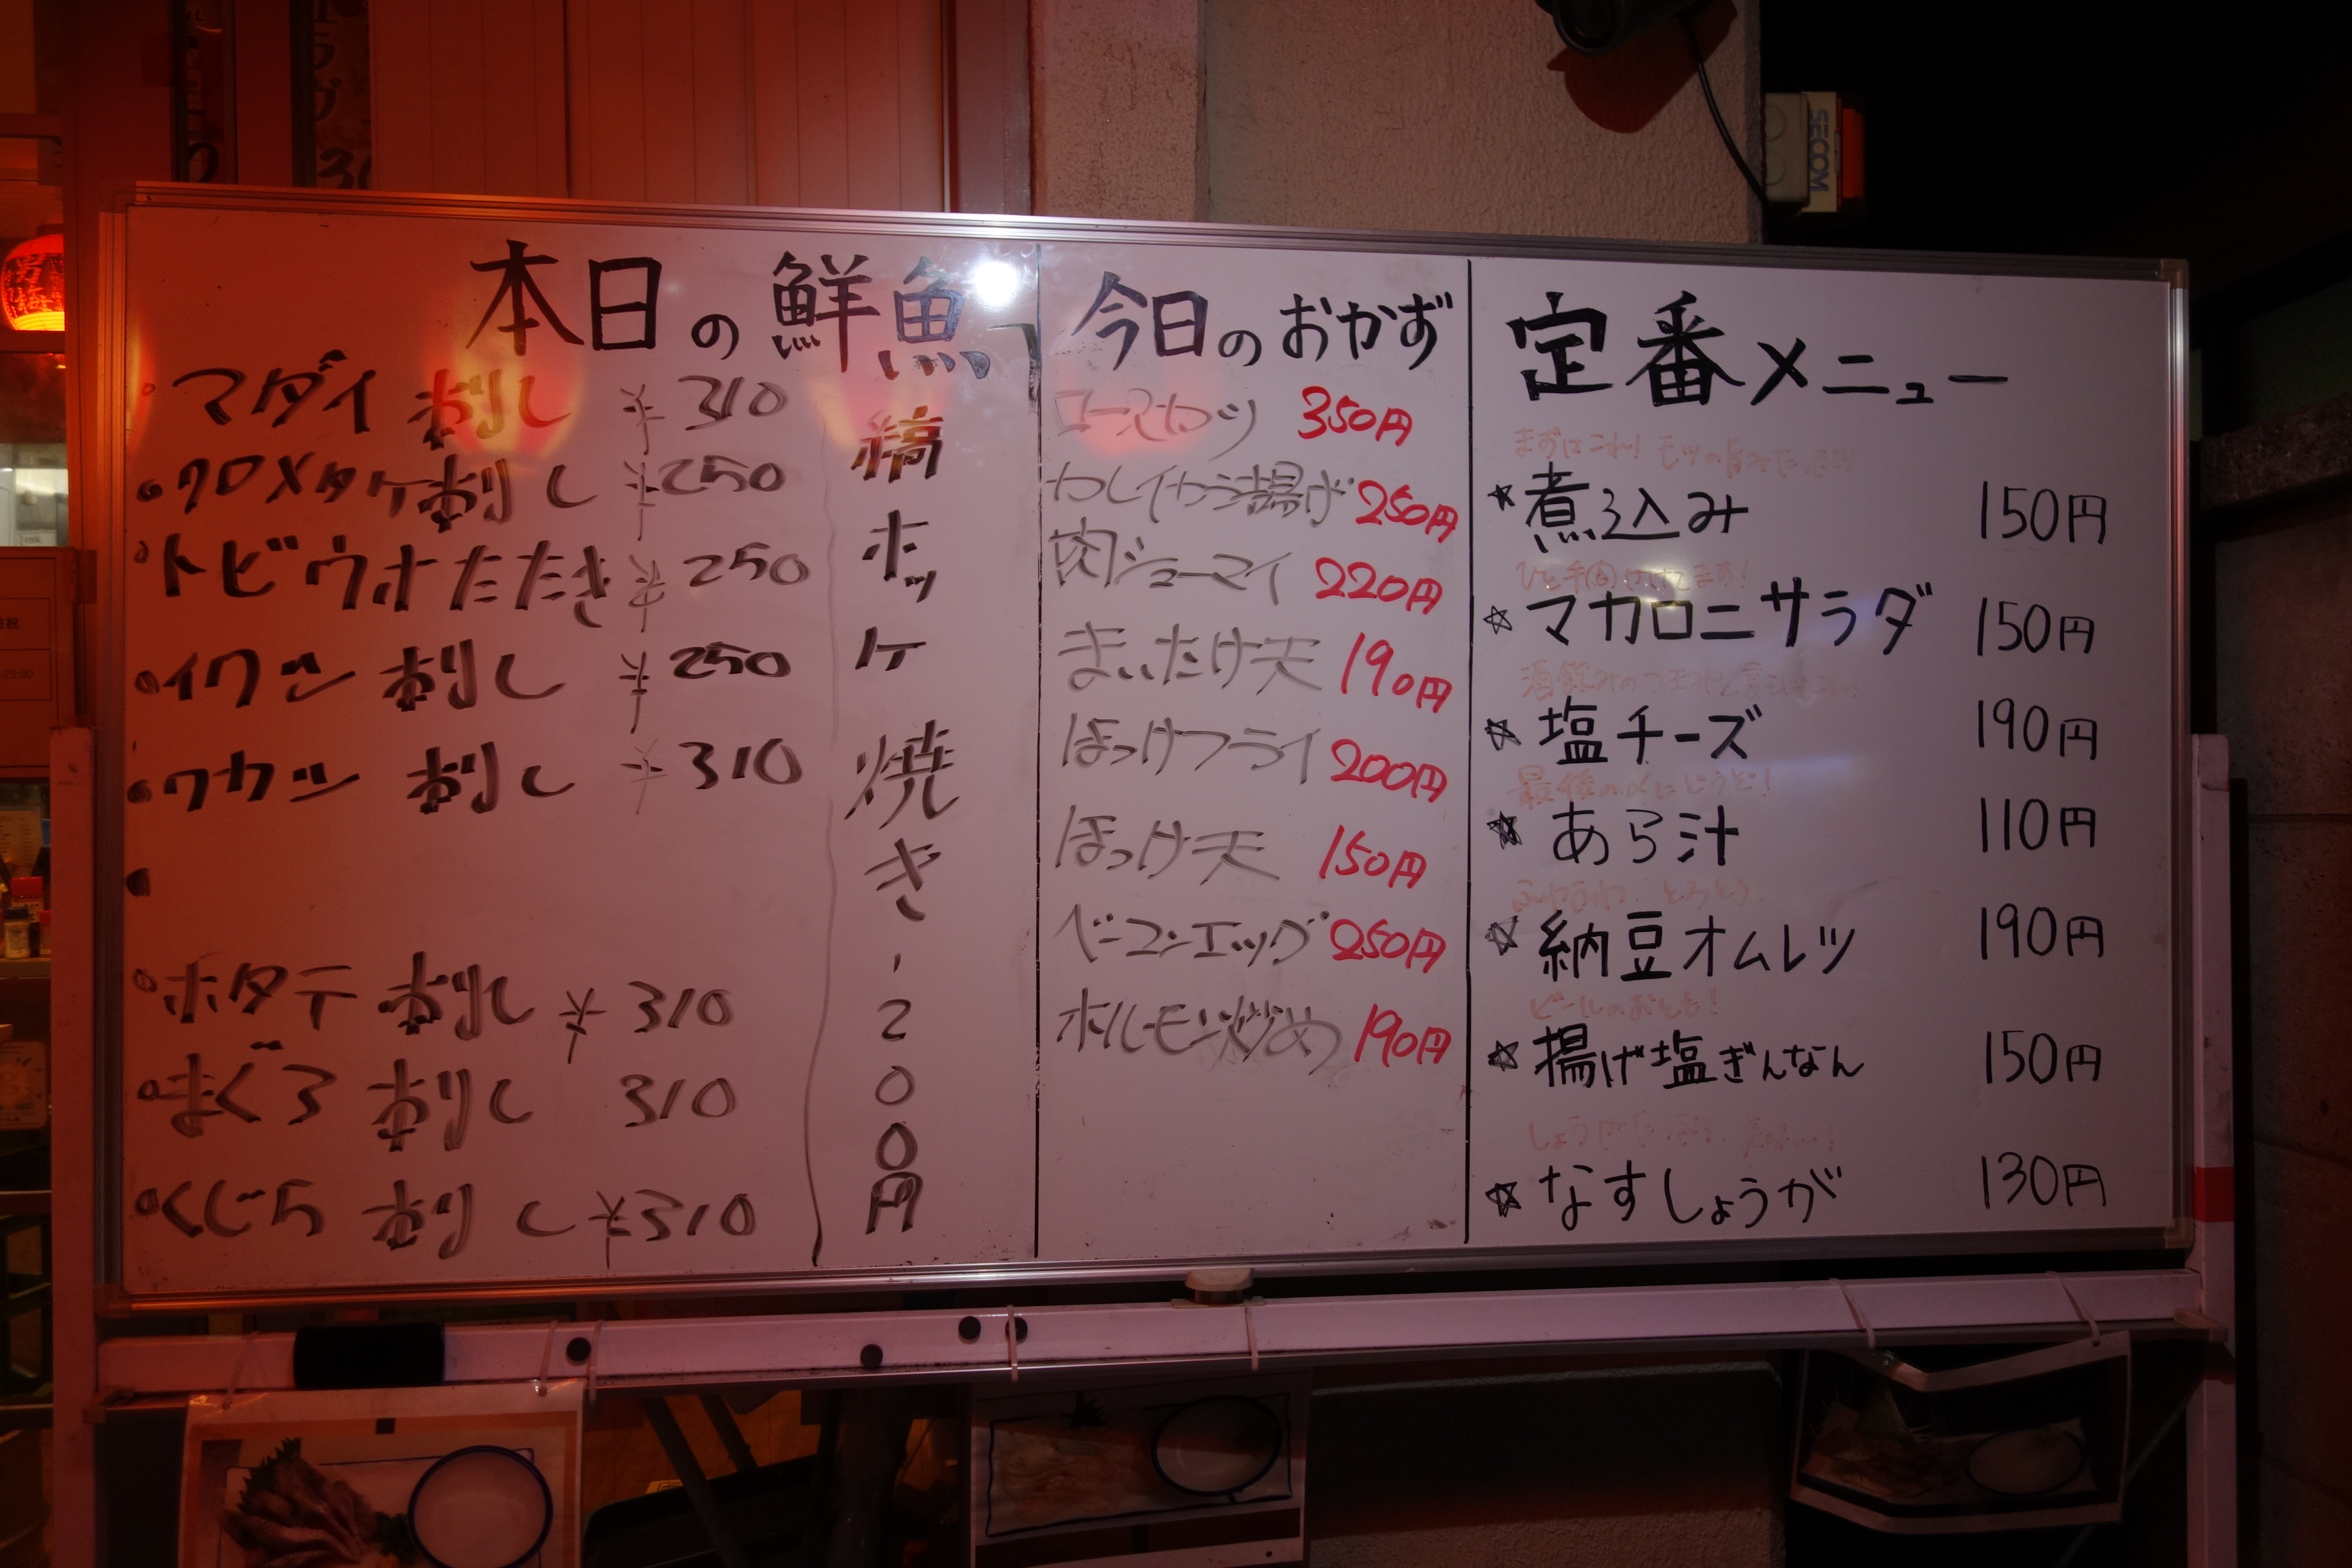 本日の鮮魚
マダイ刺し ¥310
クロメダケ刺し ¥250
トビウオたたき ¥250
イワシ刺し ¥250
ワカシ刺し ¥310
ホタテ刺し ¥310
まぐろ刺し 310
くじら刺し ¥310
縞ホッケ焼き、200円
今日のおかず
ロースカツ 350円
カレイから揚げ 250円
肉シューマイ 220円
まいたけ天 190円
ほっけフライ 200円
ほっけ天 150円
ベーコンエッグ 250円
ホルモン炒め 190円
定番メニュー
まずはこれ!モツの旨みたっぷり
★煮込み 150円
ひと手間かけてます!
☆マカロニサラダ 150円
酒飲みのつまみと言えばこれ!
☆塩チーズ 190円
最後の〆にどうぞ!
★あら汁 110円
ふわふわ、とろとろ
☆納豆オムレツ 190円
ビールのおとも!
☆揚げ塩ぎんなん 150円
しょうがたっぷり、美味い!
☆なすしょうが 130円
SECOM